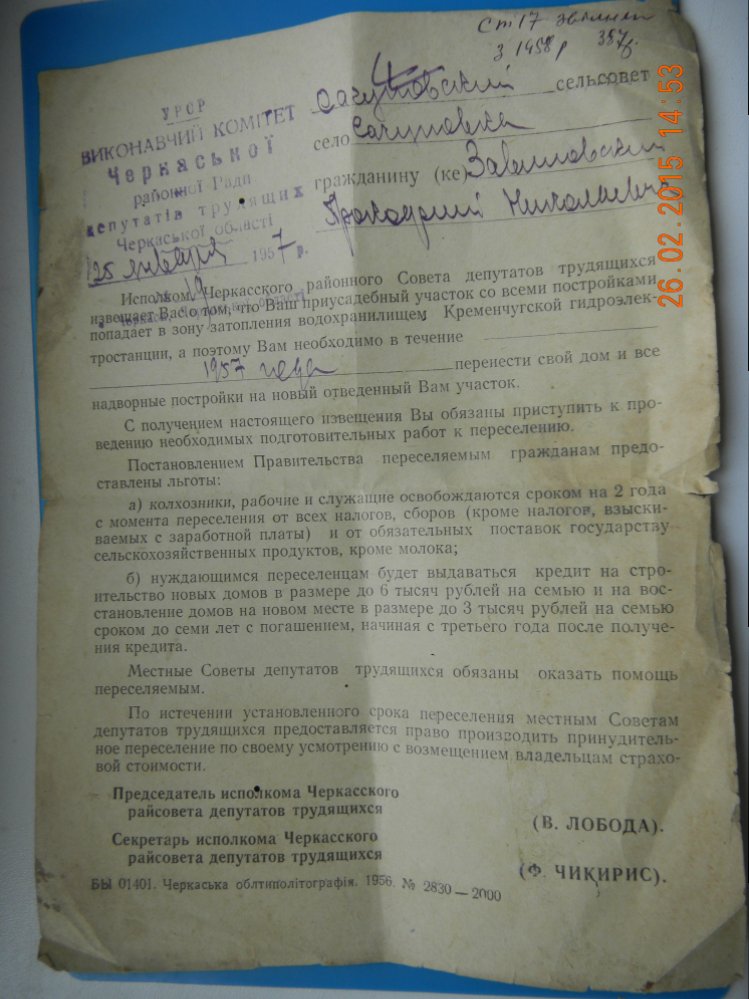 Ст 17
з 1958 р
УРСР
ВИКОНАВЧИЙ КОМІТЕТ
Черкаської
районної Ради
депутатів трудящих
Черкаської області
25 января 1957 р.
№ 19
сельсовет
село Сагуновка
гражданину (ке)
Николаевич
Исполком Черкасского районного Совета депутатов трудящихся
извещает Вас о том, что Ваш приусадебный участок со всеми постройками
попадает в зону затопления водохранилищем Кременчугской гидроэлек-
тростанции, а поэтому Вам необходимо в течение
1957 года перенести свой дом и все
надворные постройки на новый отведенный Вам участок.
С получением настоящего извещения Вы обязаны приступить к про-
ведению необходимых подготовительных работ к переселению.
Постановлением Правительства переселяемым гражданам предо-
ставлены льготы:
а) колхозники, рабочие и служащие освобождаются сроком на 2 года
с момента переселения от всех налогов, сборов (кроме налогов, взыски-
ваемых с заработной платы) и от обязательных поставок государству
сельскохозяйственных продуктов, кроме молока;
б) нуждающимся переселенцам будет выдаваться кредит на стро-
ительство новых домов в размере до 6 тысяч рублей на семью и на вос-
становление домов на новом месте в размере до 3 тысяч рублей на семью
сроком до семи лет с погашением, начиная с третьего года после получе-
ния кредита.
Местные Советы депутатов трудящихся обязаны оказать помощь
переселяемым.
По истечении установленного срока переселения местным Советам
депутатов трудящихся предоставляется право производить принудитель-
ное переселение по своему усмотрению с возмещением владельцам страхо-
вой стоимости.
Председатель исполкома Черкасского
райсовета депутатов трудящихся
(В. ЛОБОДА).
Секретарь исполкома Черкасского
райсовета депутатов трудящихся
(Ф. ЧИКИРИС).
БЫ 01401. Черкаська облтиполітографія. 1956. № 2830—2000
26.02.2015 14:53